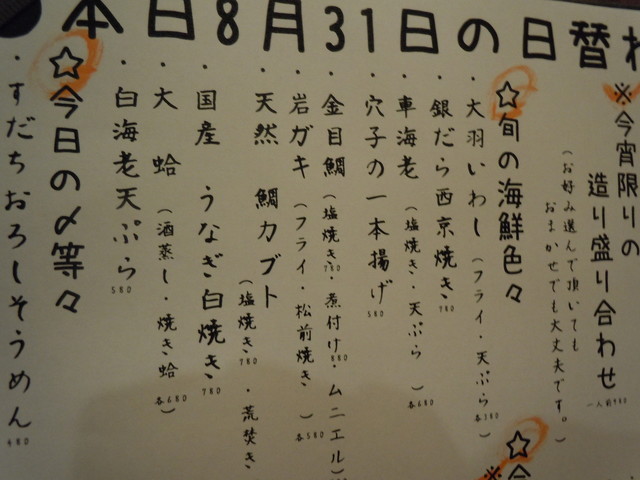 本日8月31日の日替
※今宵限りの
造り盛り合わせ
一人前980
(お好み選んで頂いても
おまかせでも大丈夫です。)
☆旬の海鮮色々
・大羽いわし(フライ・天ぷら 各380)
・銀だら西京焼き 780
・車海老(塩焼き・天ぷら 各680)
・穴子の一本揚げ 580
・金目鯛(塩焼き780・煮付け880・ムニエル)
・岩ガキ(フライ・松前焼き 各580)
・天然 鯛カブト
(塩焼き780・荒焚き
・国産 うなぎ白焼き 780
・大蛤(酒蒸し・焼き蛤 各680)
・白海老天ぷら 580
☆今日の〆等々
・すだちおろしそうめん 480
☆
※今